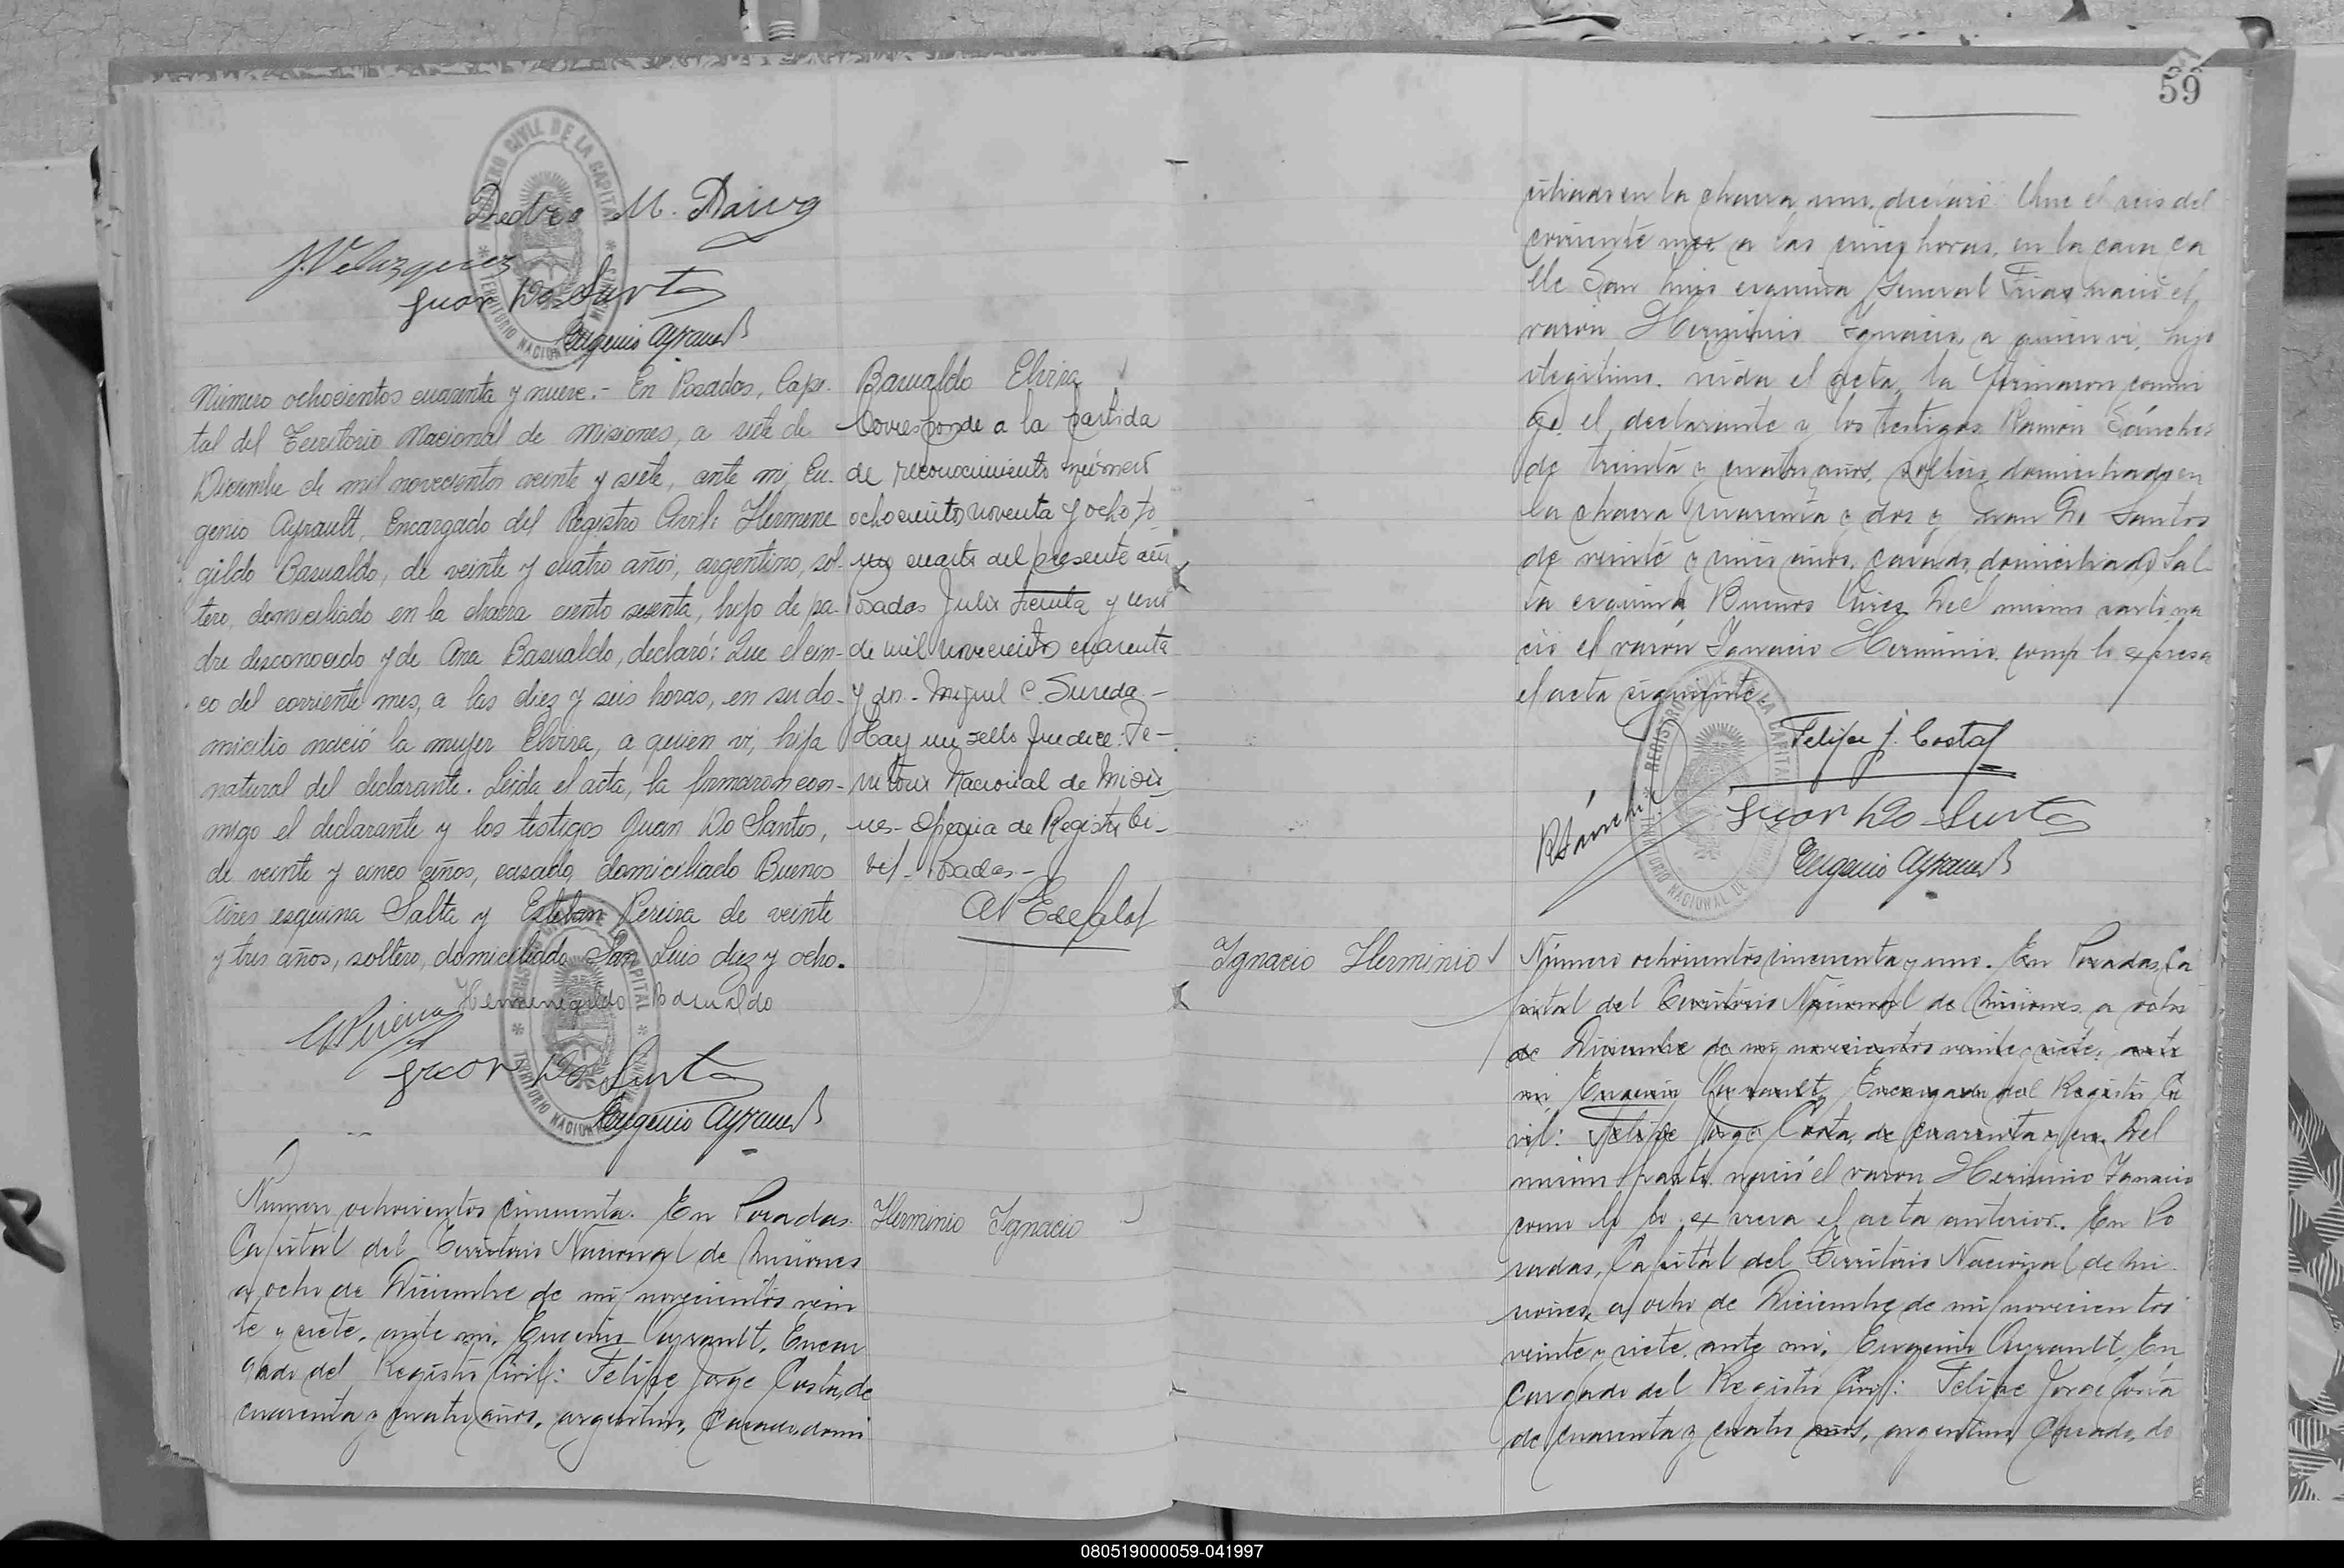 Pedro M. Daiug
J. Velazquez
Juan Do Santos
Eugenio Ayrault
REGISTRO CIVIL DE LA CAPITAL
TERRITORIO NACIONAL DE MISIONES
Número ochocientos cuarenta y nueve.- En Posadas, Capi-
tal del Territorio Nacional de Misiones, a siete de
Diciembre de mil novecientos veinte y siete, ante mi, Eu-
genio Ayrault, Encargado del Registro Civil: Hermene
gildo Basualdo, de veinte y cuatro años, argentino, sol-
tero, domiciliado en la chacra ciento sesenta, hijo de pa-
dre desconocido y de Ana Basualdo, declaró: Que el cin-
co del corriente mes, a las diez y seis horas, en su do-
micilio nació la mujer Elvira, a quien vi, hija
natural del declarante. Leida el acta, la firmaron con-
migo el declarante y los testigos Juan Do Santos,
de veinte y cinco años, casado, domiciliado Buenos
Aires esquina Salta y Esteban Pereira de veinte
y tres años, soltero, domiciliado San Luis diez y ocho.
Hermenegildo Basualdo
Juan Do Santos
Eugenio Ayrault
Basualdo Elvira
Corresponde a la partida
de reconocimiento número
ochociento noventa y ocho to
mo cuarto del presente año
Posadas Julio treinta y uno
de mil novecientos cuarenta
y dos.- Miguel C. Sureda.-
Hay un sello que dice: Te-
rritorio Nacional de Misio
nes- Oficina de Registro Ci-
vil- Posadas.-
Número ochocientos cincuenta. En Posadas
Capital del Territorio Nacional de Misiones
a ocho de Diciembre de mil novecientos vein
te y siete, ante mi, Eugenio Ayrault, Encar
gado del Registro Civil: Felipe Jorge Costa, de
cuarenta y cuatro años, argentino, casado, domi
Herminio Ignacio
59
ciliado en la chacra uno, declaró: Que el seis del
corriente mes a las cinco horas, en la casa ca
lle San Luis esquina General Frias nació el
varón Herminio Ignacio, a quien vi, hijo
ilegitimo. Leida el acta, la firmaron conmi
go el declarante y los testigos Ramón Sánchez
de treinta y cuatro años, soltero domiciliado en
la chacra cuarenta y dos y Juan Do Santos
de veinte y cinco años, casado, domiciliado Sal
ta esquina Buenos Aires Del mismo parto na
ció el varón Ignacio Herminio como lo expresa
el acta siguiente
Felipe J. Costa
R Sánchez
Juan Do Santos
Eugenio Ayrault
REGISTRO CIVIL DE LA CAPITAL
TERRITORIO NACIONAL DE MISIONES
Ignacio Herminio
Número ochocientos cincuenta y uno. En Posadas, Ca
pital del Territorio Nacional de Misiones a ocho
de Diciembre de mil novecientos veinte y siete, ante
mi, Eugenio Ayrault, Encargado del Registro Ci
vil: Felipe Jorge Costa, de cuarenta y cu. Del
mismo parto nació el varon Herminio Ignacio
como lo expresa el acta anterior. En Po
sadas, Capital del Territorio Nacional de Mi
siones, a ocho de Diciembre de mil novecientos
veinte y siete, ante mi, Eugenio Ayrault, En
cargado del Registro Civil: Felipe Jorge Costa
de cuarenta y cuatro años, argentino, casado, do
080519000059-041997